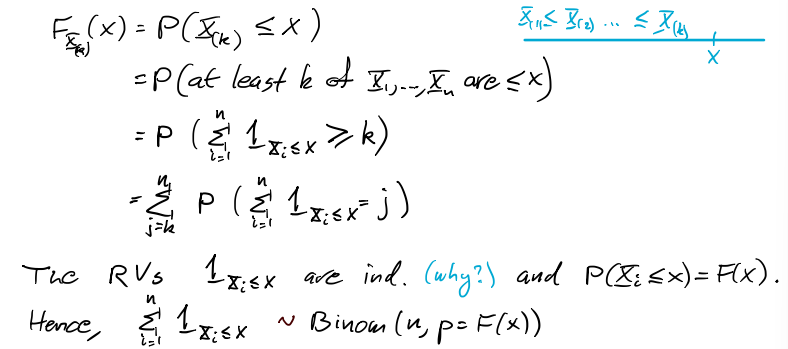 F_{X_{(k)}}(x) = P(X_{(k)} ≤ x)
X_{(1)} ≤ X_{(2)} ... ≤ X_{(k)}
x
= P(at least k of X_1, ..., X_n are ≤ x)
= P ( ∑_{i=1}^{n} 1_{X_i ≤ x} ⩾ k)
= ∑_{j=k}^{n} P ( ∑_{i=1}^{n} 1_{X_i ≤ x} = j )
The RVs 1_{X_i ≤ x} are ind. (why?) and P(X_i ≤ x) = F(x).
Hence, ∑_{i=1}^{n} 1_{X_i ≤ x} ~ Binom (n, p = F(x))